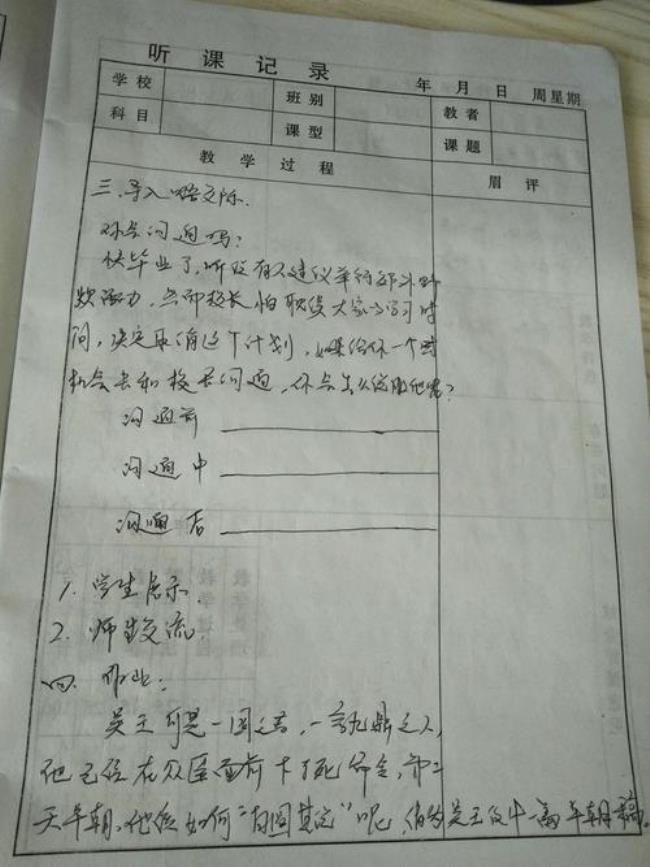 听课记录 年 月 日 周星期
学校 班别 教者
科目 课型 课题
教学过程 眉评
三、导入 交际.
你会沟通吗?
快毕业了,听说有人建议举行郊外野
炊活动,然而校长怕耽误大家的学习时
间,决定取消这个计划,如果给你一个
机会去和校长沟通,你会怎么说服他呢?
沟通前
沟通中
沟通后
1. 学生展示.
2. 师生交流.
四、作业:
吴王可是一国之君,一言九鼎之人,
他已经在众臣面前下了死命令,第二
天早朝,他该如何“自圆其说”呢,请为吴王设计一篇早朝稿.